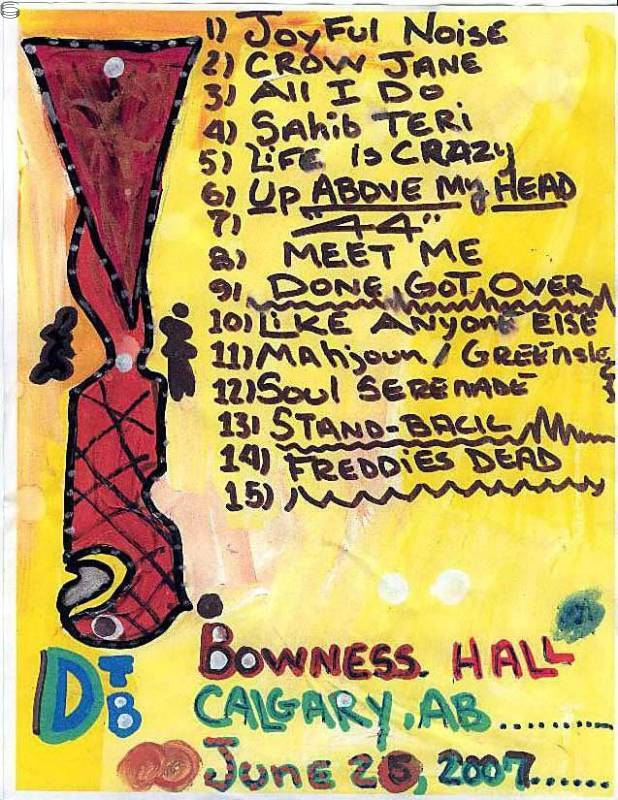 1) JOYFUL NOISE
2) CROW JANE
3) All I DO
4) SAhib TERi
5) LiFE is CRAZy
6) Up ABOVE My HEAD
7) "44"
8) MEET ME
9) DONE GOT OVER
10) LiKE ANyonE ElSE
11) MAhjoun / GREENSlE
12) SOUL SERENADE
13) STAND-BACK
14) FREDDIES DEAD
15)
DTB
BOWNESS. HALL
CALGARY, AB
JUNE 26, 2007